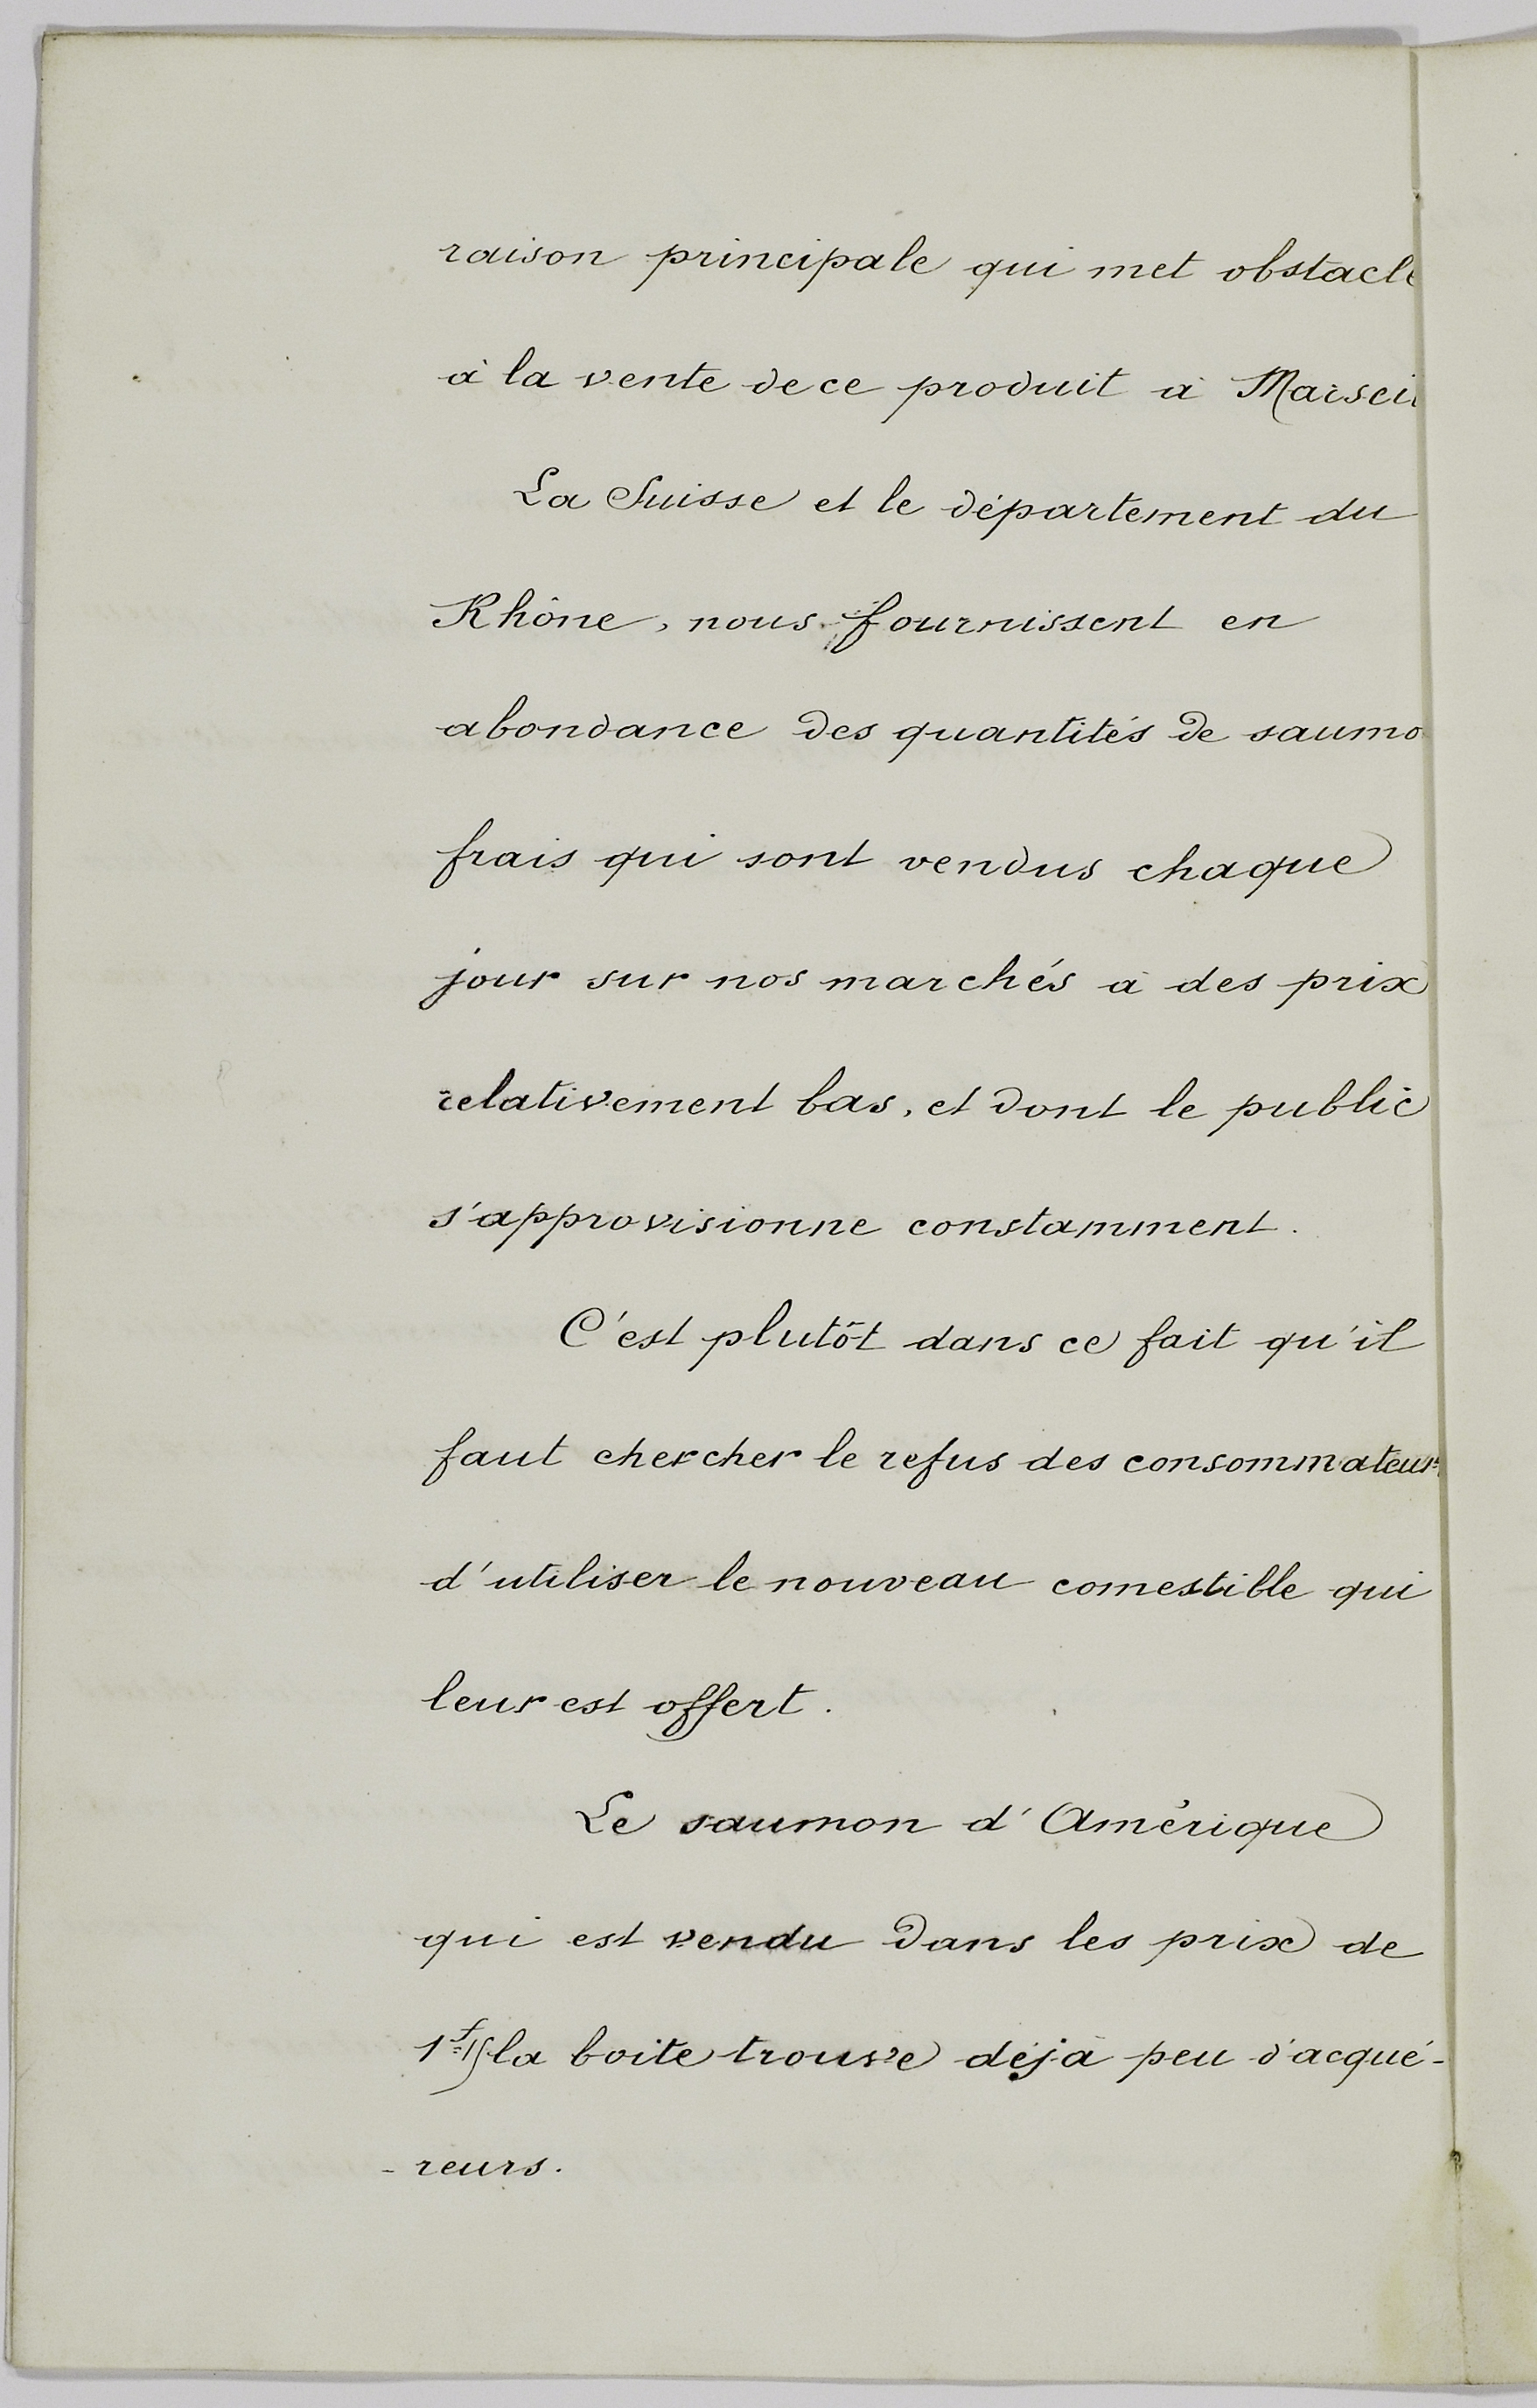 raison principale qui met obstacle
à la vente de ce produit à Marseil
La Suisse et le département du
Rhône, nous fournissent en
abondance des quantités de saumo
frais qui sont vendus chaque
jour sur nos marchés à des prix
relativement bas, et dont le public
s'approvisionne constamment.
C'est plutôt dans ce fait qu'il
faut chercher le refus des consommateurs
d'utiliser le nouveau comestible qui
leur est offert.
Le saumon d'Amérique
qui est vendu dans les prix de
la boite trouve déjà peu d'acqué-
-reurs.